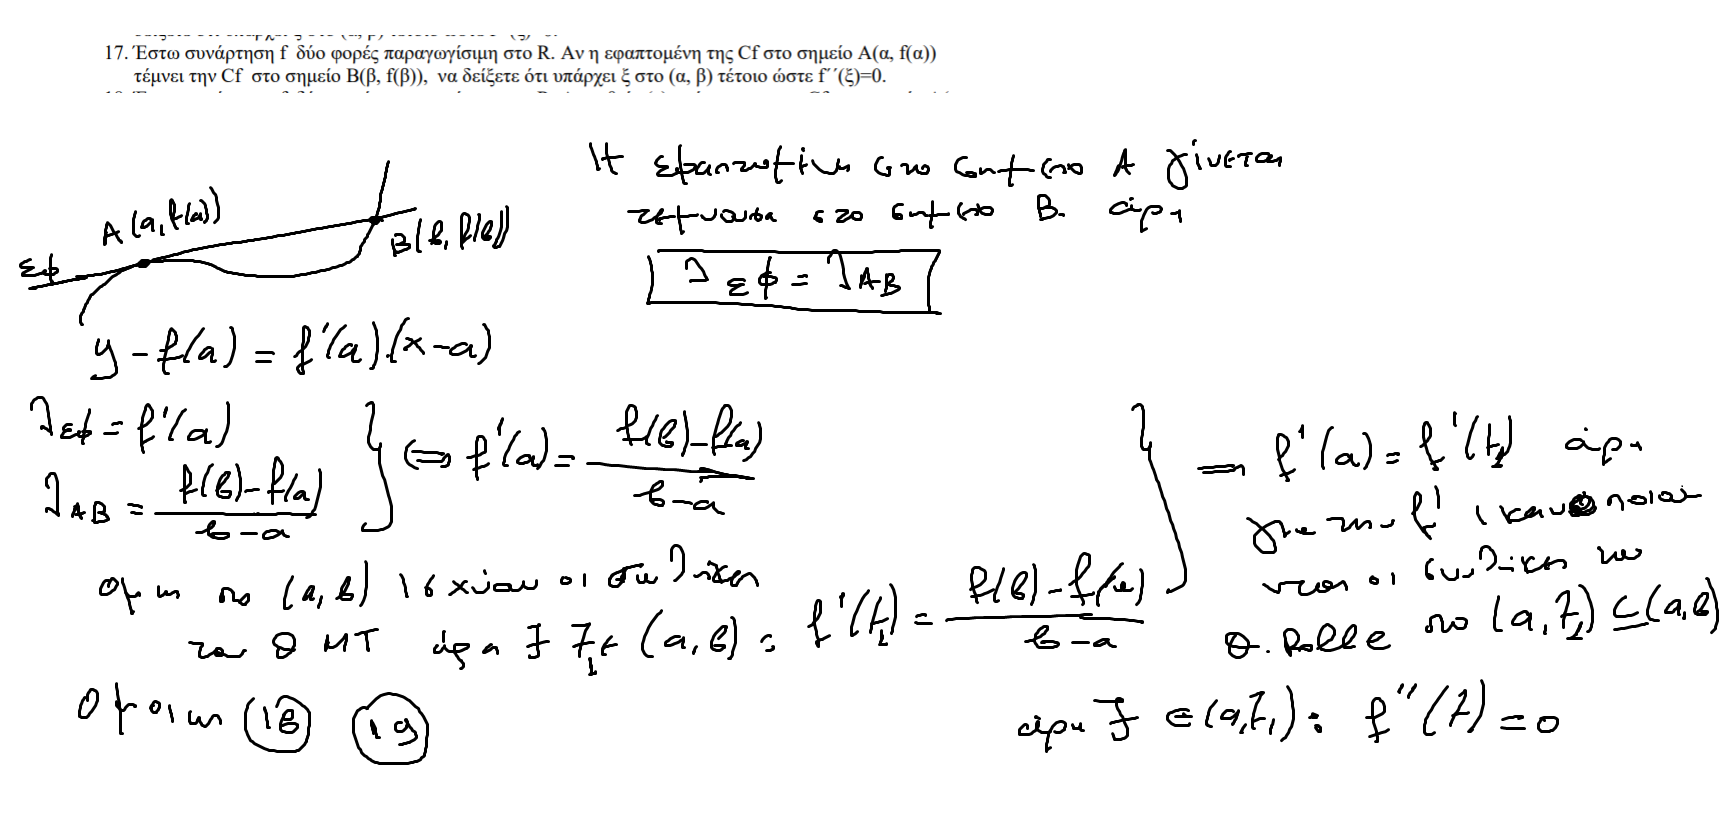 17. Έστω συνάρτηση f δύο φορές παραγωγίσιμη στο R. Αν η εφαπτομένη της Cf στο σημείο A(α, f(α))
τέμνει την Cf στο σημείο B(β, f(β)), να δείξετε ότι υπάρχει ξ στο (α, β) τέτοιο ώστε f΄΄(ξ)=0.
Η εφαπτομένη στο σημείο A γίνεται
τέμνουσα στο σημείο B. άρα
A(a, f(a))
B(β, f(β))
εφ
λ εφ = λ AB
y - f(a) = f'(a)(x-a)
λ εφ = f'(a)
λ AB = f(β) - f(a) / β - a
⇔ f'(a) = f(β) - f(a) / β - a
όμως στο (a, β) ισχύουν οι συνθήκες
του ΘΜΤ άρα ∃ ξ₁ ∈ (a, β) : f'(ξ₁) = f(β) - f(a) / β - a
⇒ f'(a) = f'(ξ₁) άρα
για την f' ικανοποιούν
νται οι συνθήκες του
Θ. Rolle στο (a, ξ₁) ⊆ (a, β)
άρα ∃ ξ ∈ (a, ξ₁) : f''(ξ) = 0
Ομοίως 18 19